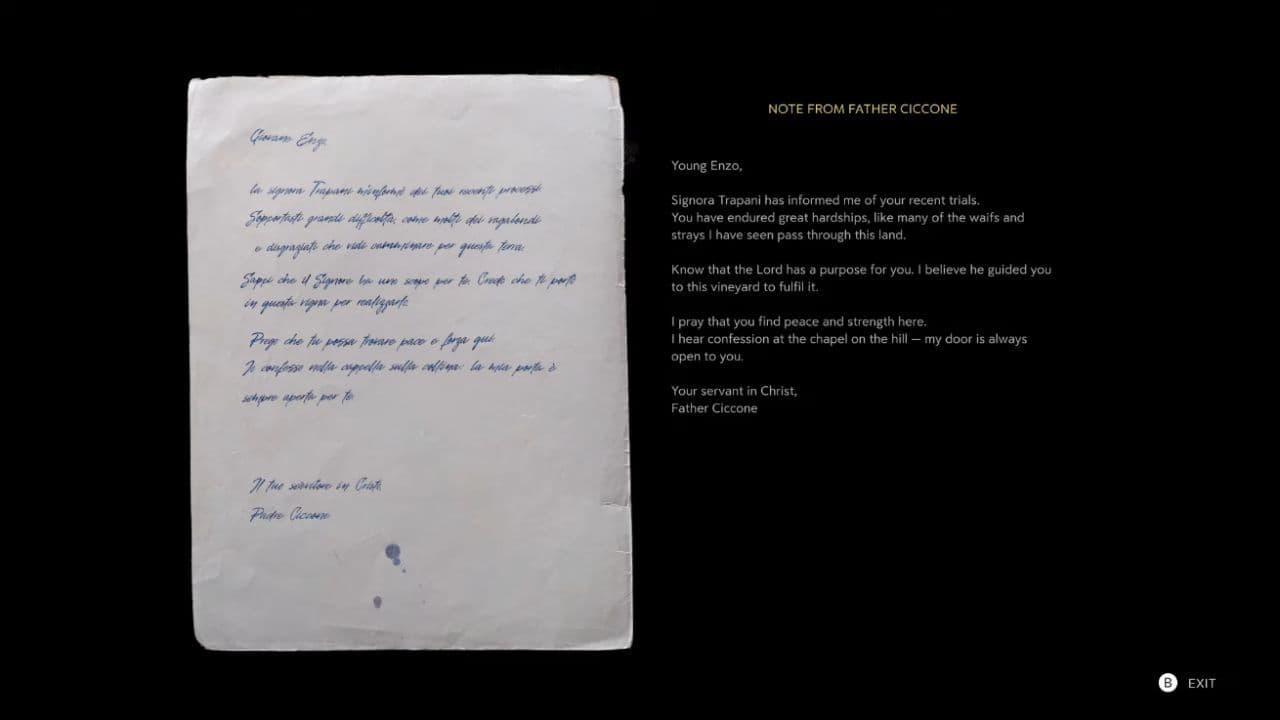 Giovane Enzo,
la signora Trapani m'informò dei tuoi recenti processi.
Sopportasti grandi difficoltà, come molti dei vagabondi
e disgraziati che vidi camminare per questa terra.
Sappi che il Signore ha uno scopo per te. Credo che ti portò
in questa vigna per realizzarlo.
Prego che tu possa trovare pace e forza qui.
Io confesso nella cappella sulla collina: la mia porta è
sempre aperta per te.
Il tuo servitore in Cristo,
Padre Ciccone
NOTE FROM FATHER CICCONE
Young Enzo,
Signora Trapani has informed me of your recent trials.
You have endured great hardships, like many of the waifs and
strays I have seen pass through this land.
Know that the Lord has a purpose for you. I believe he guided you
to this vineyard to fulfil it.
I pray that you find peace and strength here.
I hear confession at the chapel on the hill – my door is always
open to you.
Your servant in Christ,
Father Ciccone
B EXIT